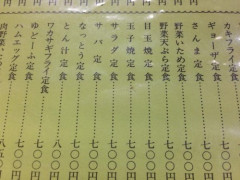 カキフライ定食
ギョーザ定食……七〇〇円
さんま定食……七〇〇円
野菜いため定食……七〇〇円
野菜天ぷら定食……七〇〇円
目玉焼定食……七〇〇円
玉子焼定食……七〇〇円
サラダ定食……七〇〇円
サバ定食……七〇〇円
なっとう定食……七〇〇円
とん汁定食……七〇〇円
ワカサギフライ定食……八〇〇円
ゆどーふ定食……七〇〇円
ハムエッグ定食……七〇〇円
肉野菜い 八五〇